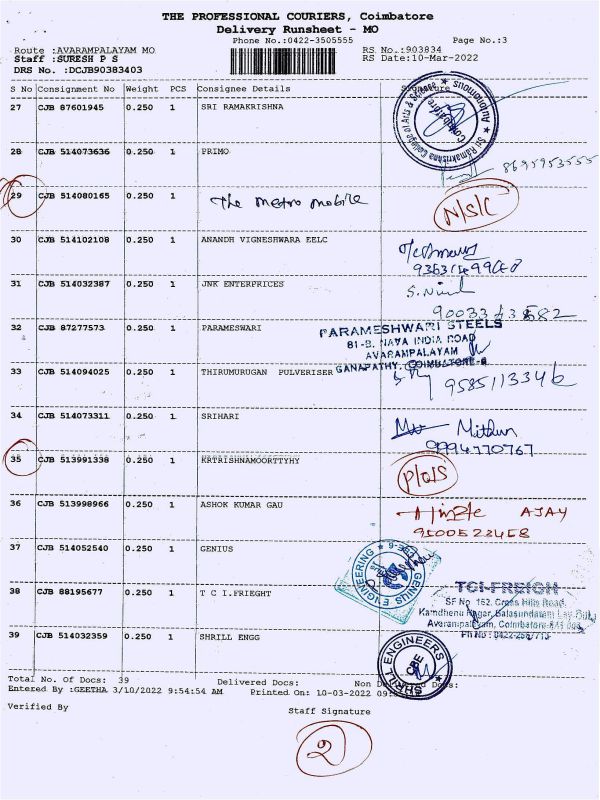 THE PROFESSIONAL COURIERS, Coimbatore
Delivery Runsheet - MO
Phone No.:0422-3505555 Page No.:3
Route :AVARAMPALAYAM MO RS No.:903834
Staff :SURESH P S RS Date:10-Mar-2022
DRS No. :DCJB90383403
S No Consignment No Weight PCS Consignee Details Signature
27 CJB 87601945 0.250 1 SRI RAMAKRISHNA
Sri Ramakrishna College of Arts & Science ★ Autonomous ★
Coimbatore
28 CJB 514073636 0.250 1 PRIMO
8695953555
29 CJB 514080165 0.250 1 The metro mobile N/S/C
30 CJB 514102108 0.250 1 ANANDH VIGNESHWARA EELC
31 CJB 514032387 0.250 1 JNK ENTERPRICES
32 CJB 87277573 0.250 1 PARAMESWARI
PARAMESHWARI STEELS
81-B, NAVA INDIA ROAD
AVARAMPALAYAM
GANAPATHY, COIMBATORE-6
33 CJB 514094025 0.250 1 THIRUMURUGAN PULVERISER
34 CJB 514073311 0.250 1 SRIHARI
Mithun
9994770767
35 CJB 513991338 0.250 1 KRTRISHNAMOORTTYHY
36 CJB 513998966 0.250 1 ASHOK KUMAR GAU
AJAY
9500528458
37 CJB 514052540 0.250 1 GENIUS
GENIUS ENGINEERING
38 CJB 88195677 0.250 1 T C I.FRIEGHT
TCI-FREIGH
SF No. 152, Cross Hills Road,
Kamdhenu Nagar, Balasundaram Lay-Out
Avarampalayam, Coimbatore
39 CJB 514032359 0.250 1 SHRILL ENGG
SHRILL ENGINEERS
CBE
Total No. Of Docs: 39 Delivered Docs: Non Delivered Docs:
Entered By :GEETHA 3/10/2022 9:54:54 AM Printed On: 10-03-2022
Verified By Staff Signature
2